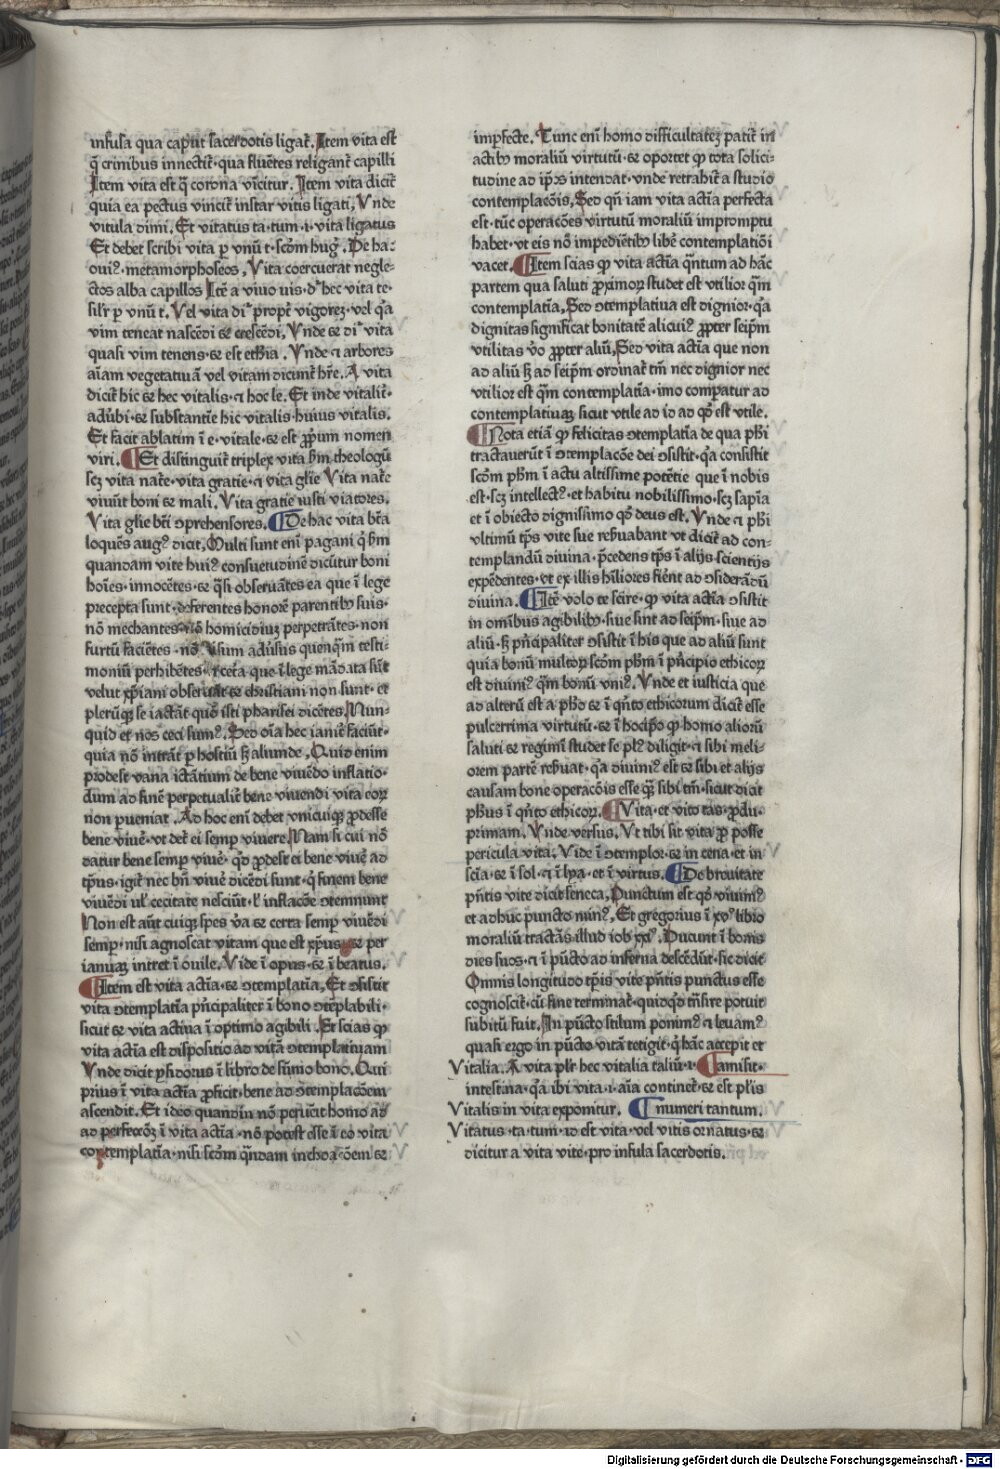 infusa qua caput sacerdotis ligat̄. Item vita est
q̄ crinibus innectit̄· qua fluētes religant̄ capilli
Item vita est q̄ corona vīcitur. Item vita dicit̄
quia ea pectus vincit̄ instar vitis ligati, Vnde
vitula dimi. Et vitatus ta·tum·i· vita ligatus
Et debet scribi vita p̱ vnū t· scd̄m hug̃. De ha-
oui?· metamorphoseos, Vita coercuerat negle-
ctos alba capillos Itē a viuo uis· d̄r hec vita te·
sil'r p̱ vnū t. Vel vita di᷑ propt̄ vigorez· vel q̄a
vim teneat nascēdi ⁊ crescēdi, Vnde ⁊ di᷑ vita
quasi vim tenens· ⁊ est eth̄ia. Vnde ⁊ arbores
aīam vegetatiuā vel vitam dicunt̄ hr̄e. A vita
dicit̄ hic ⁊ hec vitalis· ⁊ hoc le. Et inde vitalit̄·
adūbi· ⁊ substantie hic vitalis· huius vitalis.
Et facit ablatim ī e· vitale· ⁊ est p̱p̄um nomen
viri. Et distinguit̄ triplex vita s̄m theologū
scz vita nat̄e· vita gratie· ⁊ vita gl̄ie Vita nat̄e
viuūt boni ⁊ mali. Vita gratie iusti viatores.
Vita gl̄ie bt̄i ꝯprehensores. De hac vita bt̄a
loquēs aug? dicit, Multi sunt enī pagani q̄ s̄m
quandam vite hui? consuetudinē dicūtur boni
hoīes· innocētes· ⁊ q̄si obseruātes ea que ī lege
precepta sunt· deferentes honorē parentibꝫ suis·
nō mechantes· nō homicidiuz perpetrātes· non
furtū faciētes· nō falsum aduersus quenq̄m testi-
moniū perhibētes· ⁊ cet̄a· que ī lege mādata sūt
velut xp̄iani obseruāt· ⁊ christiani non sunt· et
plerūqꝫ se iactāt quō isti pharisei dicētes. Nun-
quid et nos ceci sum?. Sed oīa hec inanit̄ faciūt·
quia nō intrāt p̱ hostiū sꝫ aliunde, Quid enim
prodest vana ictātium de bene viuēdo inflatio·
dum ad finē perpetualit̄ bene viuendi vita eoꝝ
non pueniat. Ad hoc enī debet vnicuiqꝫ ꝓdesse
bene viuē· vt det̄ ei semp̱ viuere. Nam si cui nō
datur bene semp̱ viuē· qd̄ ꝓdest ei bene viuē ad
tp̄us· igit̄ nec bn̄ viuē dicēdi sunt· q̄ finem bene
viuēdi ul' cecitate nesciūt· l' inflacōe ꝯtemnunt
Non est aūt cuiqꝫ spes v̄a ⁊ certa semp̱ viuēdi
semp̱· nisi agnoscat vitam que est xp̄us· ⁊ per
ianuaꝫ intret ī ouile. Vide ī opus· ⁊ ī beatus.
Item est vita actīa· ⁊ ꝯtemplatīa, Et ꝯsistit
vita ꝯtemplatīa pn̄cipaliter ī bono ꝯtēplabili·
sicut ⁊ vita actiua ī optimo agibili. Et scias qꝫ
vita actīa est dispositio ad vitā ꝯtemplatiuam
Vnde dicit p̱sidorus ī libro de sūmo bono. Qui
prius ī vita actīa ꝓficit· bene ad ꝯtemplacōem
ascendit. Et ideo quandiu nō peruēit homo ad
ad perfeccōꝫ ī vita actīa· nō potest esse ī eo vita
contemplatīa· nisi scd̄m q̄ndam inchoacōem ⁊
imp̱fecte. Tunc enī homo difficultatez patit̄ in
actibꝫ moraliū virtutū· ⁊ oportet qꝫ tota solici-
tudine ad ip̄os intendat· vnde retrahit̄ a studio
contemplacōis, Sed qn̄ iam vita actīa perfecta
est· tūc operacōes virtutū moraliū impromptu
habet· vt eis nō impeditibꝫ libē contemplatiōi
vacet. Item scias qꝫ vita actīa q̄ntum ad hāc
partem qua saluti ꝓximoꝝ studet est vtilior q̄m
contemplatīa, Sed ꝯtemplatiua est dignior· q̄a
dignitas significat bonitatē alicui? ꝓpter seip̄m
vtilitas v̄o ꝓpter aliū, Sed vita actīa que non
ad aliū sꝫ ad seip̄m ordinat̄ tm̄ nec dignior nec
vtilior est q̄m contemplatīa· imo compatur ad
contemplatiuaꝫ sicut vtile ad id ad qd̄ est vtile.
Nota etiā qꝫ felicitas ꝯtemplatīa de qua ph̄i
tractauerūt ī ꝯtemplacōe dei ꝯsistit· q̄a consistit
scd̄m ph̄m ī actu altissime potētie que ī nobis
est· scꝫ intellect?· et habitu nobilissimo· scꝫ sap̄ia
et ī obiecto dignissimo qd̄ deus est. Vnde ⁊ ph̄i
vltimū tp̄s vite sue reh̄uabant vt dicit̄ ad con-
templandū diuina· p̄cedens tp̄s ī alijs scientijs
expēdentes· vt ex illis h̄iliores fiēnt ad ꝯsiderādū
diuina. Itē volo te scire· qꝫ vita actīa ꝯsistit
in omībus agibilibꝫ· siue sint ad seip̄m· siue ad
aliū· sꝫ pn̄cipaliter ꝯsistit ī his que ad aliū sunt
quia bonū multoꝝ scd̄m ph̄m ī pn̄cipio ethicoꝝ
est diuini? q̄m bonū vni?. Vnde et iusticia que
ad alterū est a ph̄o ⁊ ī qn̄to ethicorum dicit̄ esse
pulcerrima virtutū· ⁊ ī hocip̄o qꝫ homo alioꝝū
saluti ⁊ regimī studet se pl? diligit· ⁊ sibi meli-
orem partē reh̄uat· q̄a diuini? est ⁊ sibi et alijs
causam bone operacōis esse qꝫ sibi tm̄· sicut dicit
ph̄us ī qn̄to ethicoꝝ. Vita· et vito tas· ꝓdu·
primam. Vnde versus. Vt tibi sit vita ꝓ posse
pericula vita. Vide ī ꝯtemplor· ⁊ in cena· et in
scīa· ⁊ ī sol· ⁊ ī lxa· et ī virtus. De breuitate
pn̄tis vite dicit seneca, Punctum est qd̄ viuim?
et adhuc puncto min?, Et gregorius ī xv° libro
moraliū tractās illud iob xxi°. Ducunt ī bonis
dies suos· ⁊ ī pūcto ad inferna descēdūt· sic dicit
Omnis longitudo tp̄is vite pn̄tis punctus esse
cognoscit̄· cū fine terminat̄· quicqd̄ trāsire potuit
subitū fuit. In pūcto stilum ponim? ⁊ leuam?
quasi ergo in pūcto vitā tetigit· q̄ hāc accepit et
Vitalia. A vita pl'r hec vitalia taliū· i· amisit·
intestina· q̄a ibi vita· i· aīa continet̄· ⁊ est pl'is
Vitalis in vita exponitur. numeri tantum.
Vitatus· ta· tum· id est vita· vel vitis ornatus· ⁊
dicitur a vita vite· pro infula sacerdotis.
Digitalisierung gefördert durch die Deutsche Forschungsgemeinschaft - DFG